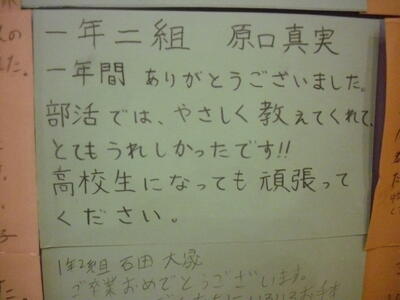 一年二組 原口真実
一年間 ありがとうございました。
部活では、やさしく教えてくれて、
とてもうれしかったです!!
高校生になっても頑張って
ください。
1年2組 石田 大
ご卒業おめでとうございます。